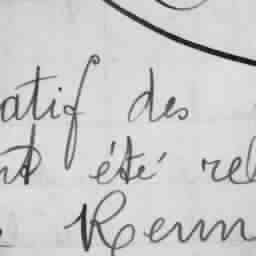 atif des
nt été rel
Renn